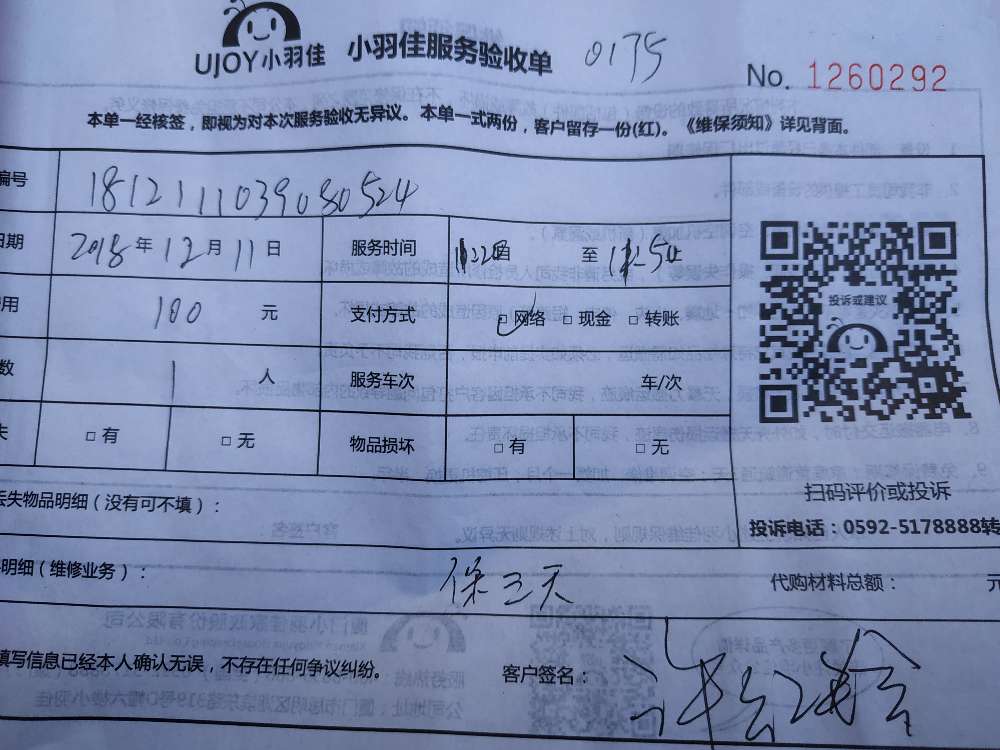 UJOY小羽佳 小羽佳服务验收单 0175
No. 1260292
本单一经核签，即视为对本次服务验收无异议。本单一式两份，客户留存一份(红)。《维保须知》详见背面。
编号 181211103908 0524
日期 2018年12月11日 服务时间 至
用 100 元 支付方式 □网络 □现金 □转账
数 1 人 服务车次 车/次
失 □有 □无 物品损坏 □有 □无
投诉或建议
扫码评价或投诉
投诉电话：0592-5178888转
丢失物品明细（没有可不填）：
明细（维修业务）： 保三天 代购材料总额： 元
填写信息已经本人确认无误，不存在任何争议纠纷。 客户签名：